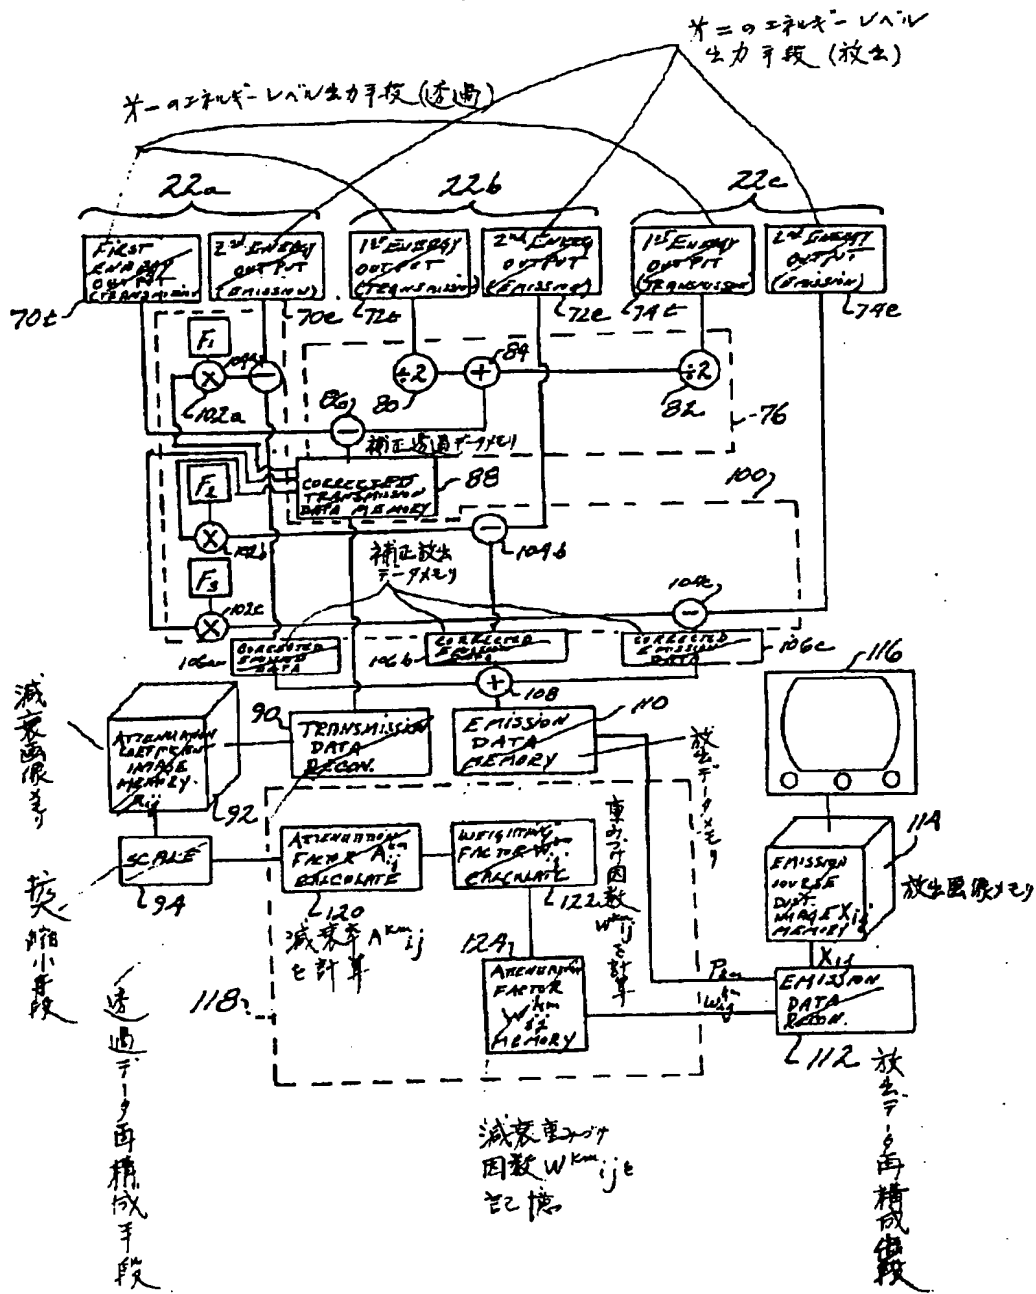 オ二のエネルギーレベル
出力手段(放出)
オ一のエネルギーレベル出力手段(透過)
22a
22b
22c
FIRST
ENERGY
OUTPUT
(TRANSMISSION)
2nd ENERGY
OUTPUT
(EMISSION)
1st ENERGY
OUTPUT
(TRANSMISSION)
2nd ENERGY
OUTPUT
(EMISSION)
1st ENERGY
OUTPUT
(TRANSMISSION)
2nd ENERGY
OUTPUT
(EMISSION)
70t
70e
72t
72e
74t
74e
F1
104a
×
−
102a
÷2
80
+
84
÷2
82
86
−
76
補正透過データメモリ
CORRECTED
TRANSMISSION
DATA MEMORY
88
100
F2
×
102b
−
104b
補正放出
データメモリ
F3
×
102c
−
104c
106a
CORRECTED
EMISSION
DATA
106b
CORRECTED
EMISSION
DATA
CORRECTED
EMISSION
DATA
106c
+
108
116
減衰画像メモリ
ATTENUATION
COEFFICIENT
IMAGE
MEMORY
92
90
TRANSMISSION
DATA
RECON.
EMISSION
DATA
MEMORY
110
放出データメモリ
SCALE
94
拡大縮小手段
ATTENUATION
FACTOR A^km ij
CALCULATE
120
減衰率A^km ij
を計算
WEIGHTING
FACTOR W^km ij
CALCULATE
122
重みづけ因数
W^km ijを計算
124
ATTENUATION
FACTOR
W^km ij
MEMORY
118
EMISSION
SOURCE
DIST.
IMAGE Xij
MEMORY
114
放出画像メモリ
Xij
Pkm
W^km ij
EMISSION
DATA
RECON.
112
透過データ再構成手段
減衰重みづけ
因数W^km ijを
記憶
放出データ再構成手段